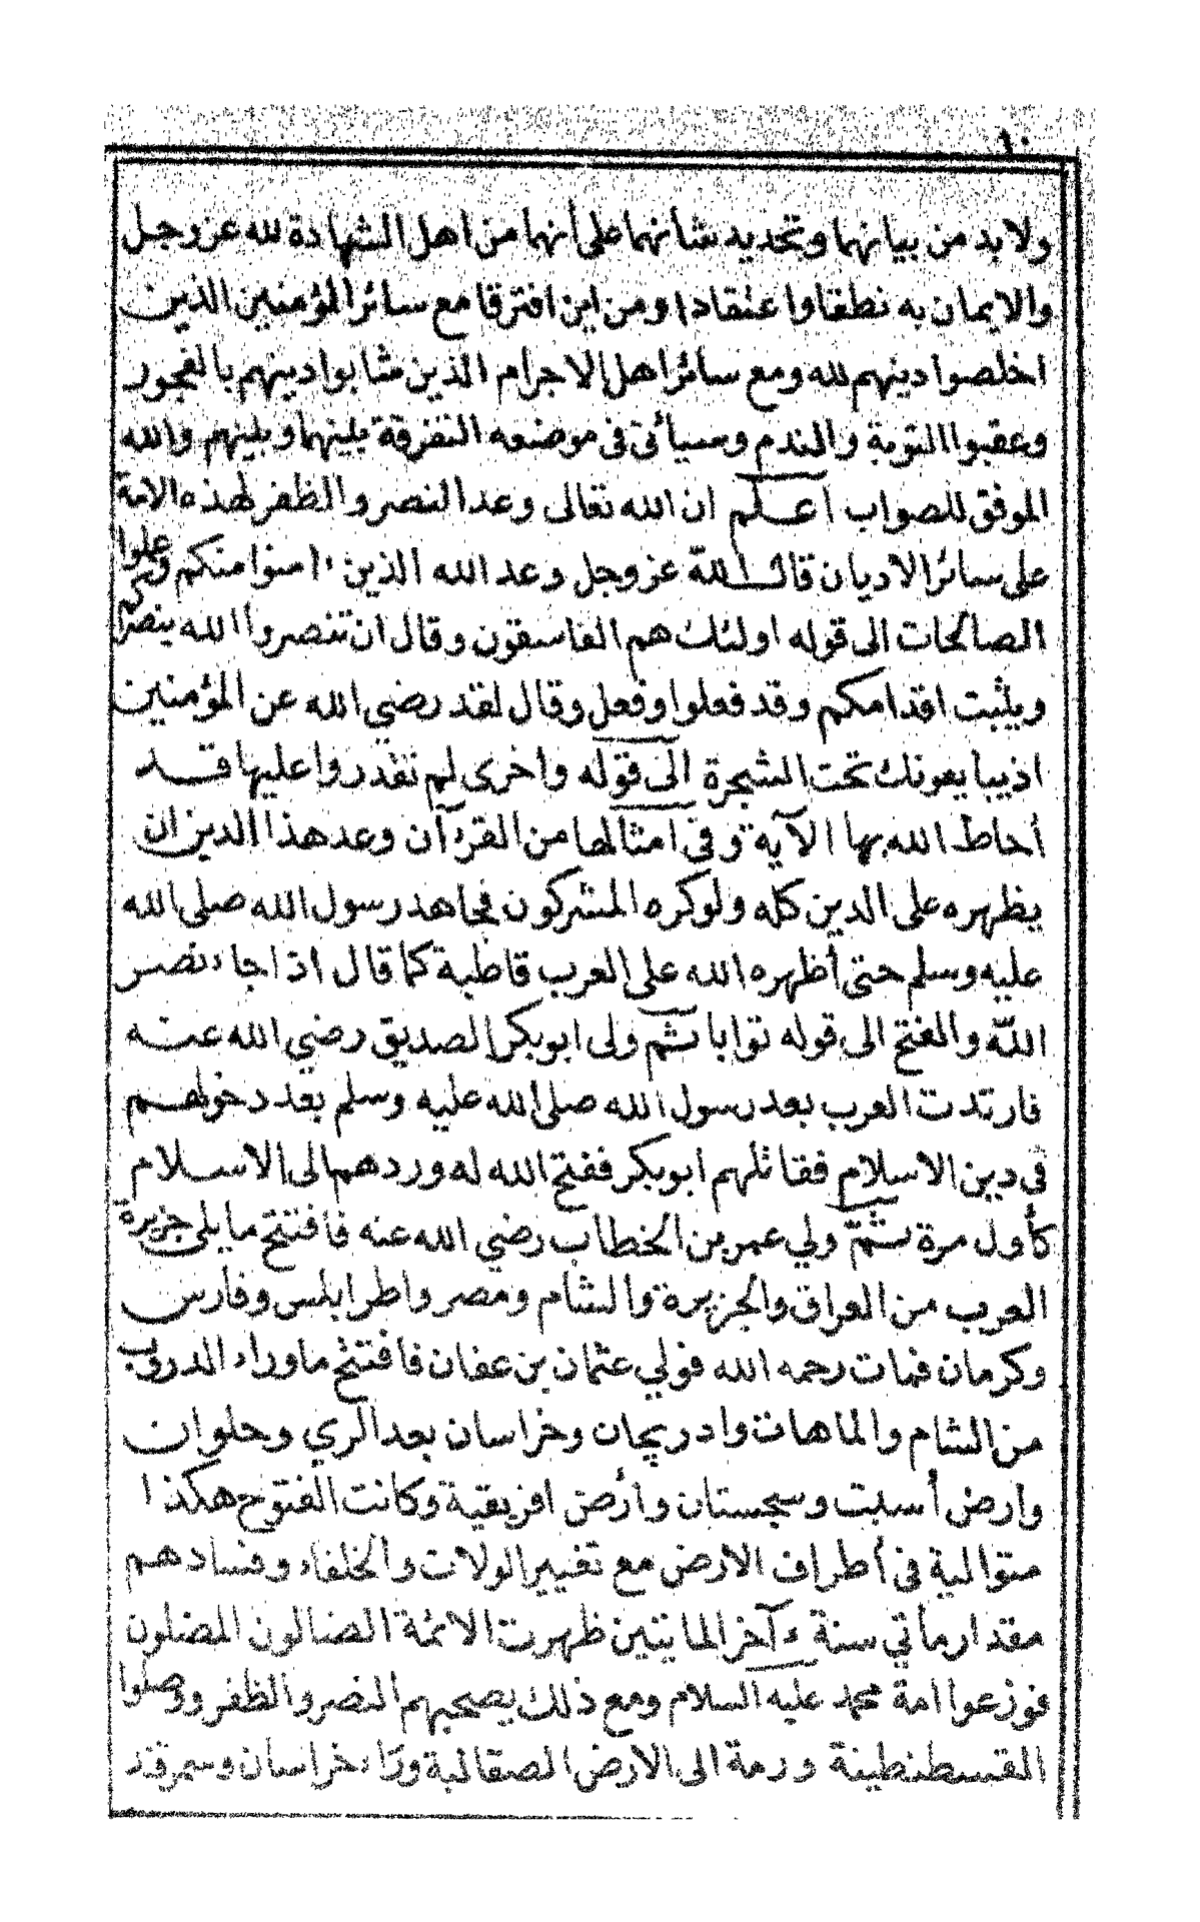 ١٠
ولا بد من بيانهما وتحديد شأنهما على أنهما من اهل الشهادة لله عز وجل
والايمان به نطقا واعتقادا ومن اين افترقا مع سائر المؤمنين الذين
اخلصوا دينهم لله ومع سائر اهل الاجرام الذين شابوا دينهم بالفجور
وعقبوا التوبة والندم وسيأتى فى موضعه التفرقة بينهما وبينهم والله
الموفق للصواب اعلم ان الله تعالى وعد النصر والظفر لهذه الامة
على سائر الاديان قال الله عز وجل وعد الله الذين ءامنوا منكم وعملوا
الصالحات الى قوله اولئك هم الفاسقون وقال ان تنصروا الله ينصركم
ويثبت اقدامكم وقد فعلوا وفعل وقال لقد رضي الله عن المؤمنين
اذ يبايعونك تحت الشجرة الى قوله واخرى لم تقدروا عليها قد
أحاط الله بها الآية وفى امثالها من القرءآن وعد هذا الدين ان
يظهره على الدين كله ولو كره المشركون فجاهد رسول الله صلى الله
عليه وسلم حتى أظهره الله على العرب قاطبة كما قال اذا جاء نصر
الله والفتح الى قوله توابا ثم ولى ابو بكر الصديق رضي الله عنه
فارتدت العرب بعد رسول الله صلى الله عليه وسلم بعد دخولهم
في دين الاسلام فقاتلهم ابو بكر ففتح الله له وردهم الى الاسلام
كأول مرة ثم ولي عمر بن الخطاب رضي الله عنه فافتتح ما يلى جزيرة
العرب من العراق والجزيرة والشام ومصر واطرابلس وفارس
وكرمان فمات رحمه الله فولي عثمان بن عفان فافتتح ما وراء الدروب
من الشام والماهات وادريجان وخراسان بعد الري وحلوان
وارض أسبت وسجستان وأرض افريقية وكانت الفتوح هكذا
متوالية فى أطراف الارض مع تغيير الولات والخلفاء وفسادهم
مقدار مأتي سنة ءآخر المايتين ظهرت الائمة الضالون المضلون
فوزعوا امة محمد عليه السلام ومع ذلك يصحبهم النصر والظفر ووصلوا
القسطنطينة ورمة الى الارض الصقالبة وراء خراسان وسمرقند